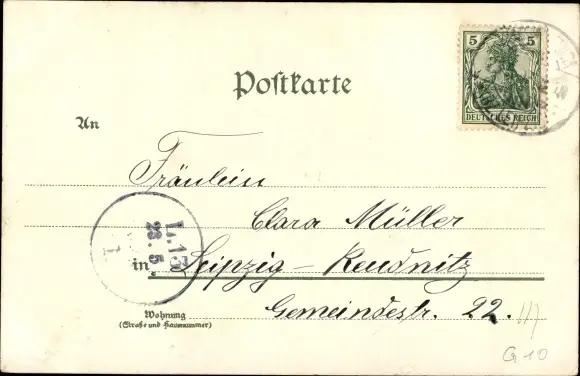 5 5
DEUTSCHES REICH
Postkarte
An
Fräulein
Clara Müller
in Leipzig – Reudnitz
Gemeindestr. 22. III
Wohnung
(Straße und Hausnummer)
L.13
23.5
1
G 10